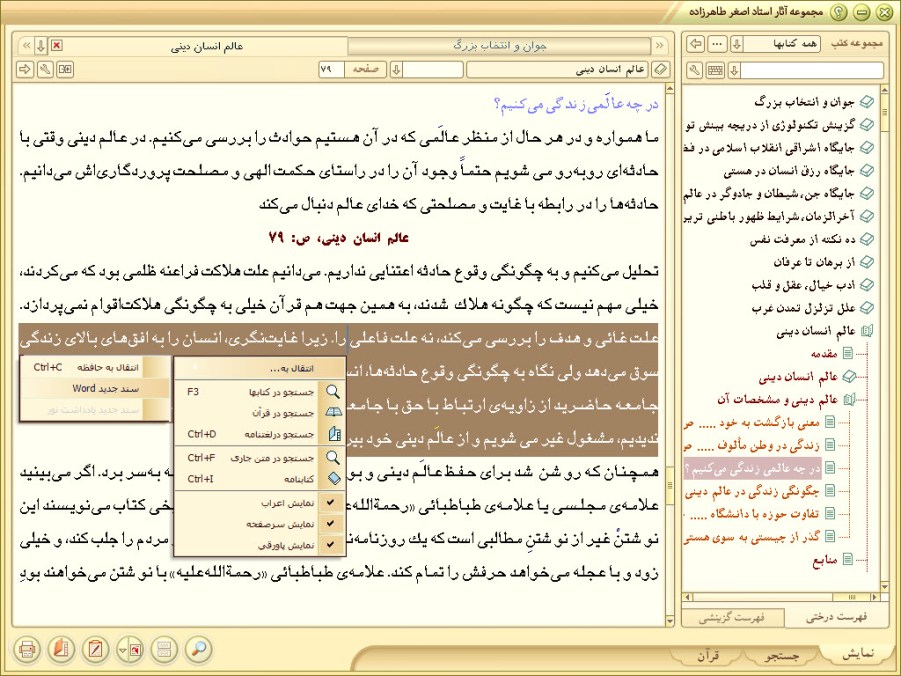 مجموعه آثار استاد اصغر طاهرزاده
مجموعه کتب
همه کتابها
جوان و انتخاب بزرگ
عالم انسان دینی
عالم انسان دینی
صفحه
۷۹
در چه عالَمی زندگی می‌کنیم؟
ما همواره و در هر حال از منظر عالَمی که در آن هستیم حوادث را بررسی می‌کنیم. در عالم دینی وقتی با
حادثه‌ای روبه‌رو می شویم حتماً وجود آن را در راستای حکمت الهی و مصلحت پروردگاری‌اش می‌دانیم.
حادثه‌ها را در رابطه با غایت و مصلحتی که خدای عالم دنبال می‌کند
عالم انسان دینی، ص: ۷۹
تحلیل می‌کنیم و به چگونگی وقوع حادثه اعتنایی نداریم. می‌دانیم علت هلاکت فراعنه ظلمی بود که می‌کردند،
خیلی مهم نیست که چگونه هلاک شدند، به همین جهت هم قرآن خیلی به چگونگی هلاکت‌اقوام نمی‌پردازد.
علت غائی و هدف را بررسی می‌کند، نه علت فاعلی را. زیرا غایت‌نگری، انسان را به افق‌های بالای زندگی
سوق می‌دهد ولی نگاه به چگونگی وقوع حادثه‌ها،
جامعه حاضرید از زاویه‌ی ارتباط با حق با
ندیدیم، مشغول غیر می شویم و از عالَم دینی خود
همچنان که روشن شد برای حفظ عالَم دینی و
به‌سر برد. اگر می‌بینید
علامه‌ی مجلسی یا علامه‌ی طباطبائی «رحمةالله
کتاب می‌نویسند این
نوشتنْ غیر از نوشتنِ مطالبی است که یك
مردم را جلب کند، و خیلی
زود و با عجله می‌خواهد حرفش را تمام کند. علامه‌ی طباطبائی «رحمةالله‌علیه» با نوشتن می‌خواهند بودِ
انتقال به...
جستجو در کتابها F3
جستجو در قرآن
جستجو درلغتنامه Ctrl+D
جستجو در متن جاری Ctrl+F
کتابنامه Ctrl+I
نمایش اعراب
نمایش سرصفحه
نمایش پاورقی
انتقال به حافظه Ctrl+C
سند جدید Word
سند جدید یادداشت نور
جوان و انتخاب بزرگ
گزینش تکنولوژی از دریچه بینش تو
جایگاه اشراقی انقلاب اسلامی در
جایگاه رزق انسان در هستی
جایگاه جن، شیطان و جادوگر در عالم
آخرالزمان، شرایط ظهور باطنی
ده نکته از معرفت نفس
از برهان تا عرفان
ادب خیال، عقل و قلب
علل تزلزل تمدن غرب
عالم انسان دینی
مقدمه
عالم انسان دینی
عالم دینی و مشخصات آن
معنی بازگشت به خود ..... ص
زندگی در وطن مألوف ..... ص
در چه عالمی زندگی می‌کنیم ؟
چگونگی زندگی در عالم دینی
تفاوت حوزه با دانشگاه .....
گذر از چیستی به سوی هستی
منابع
فهرست درختی
فهرست گزینشی
نمایش
جستجو
قرآن